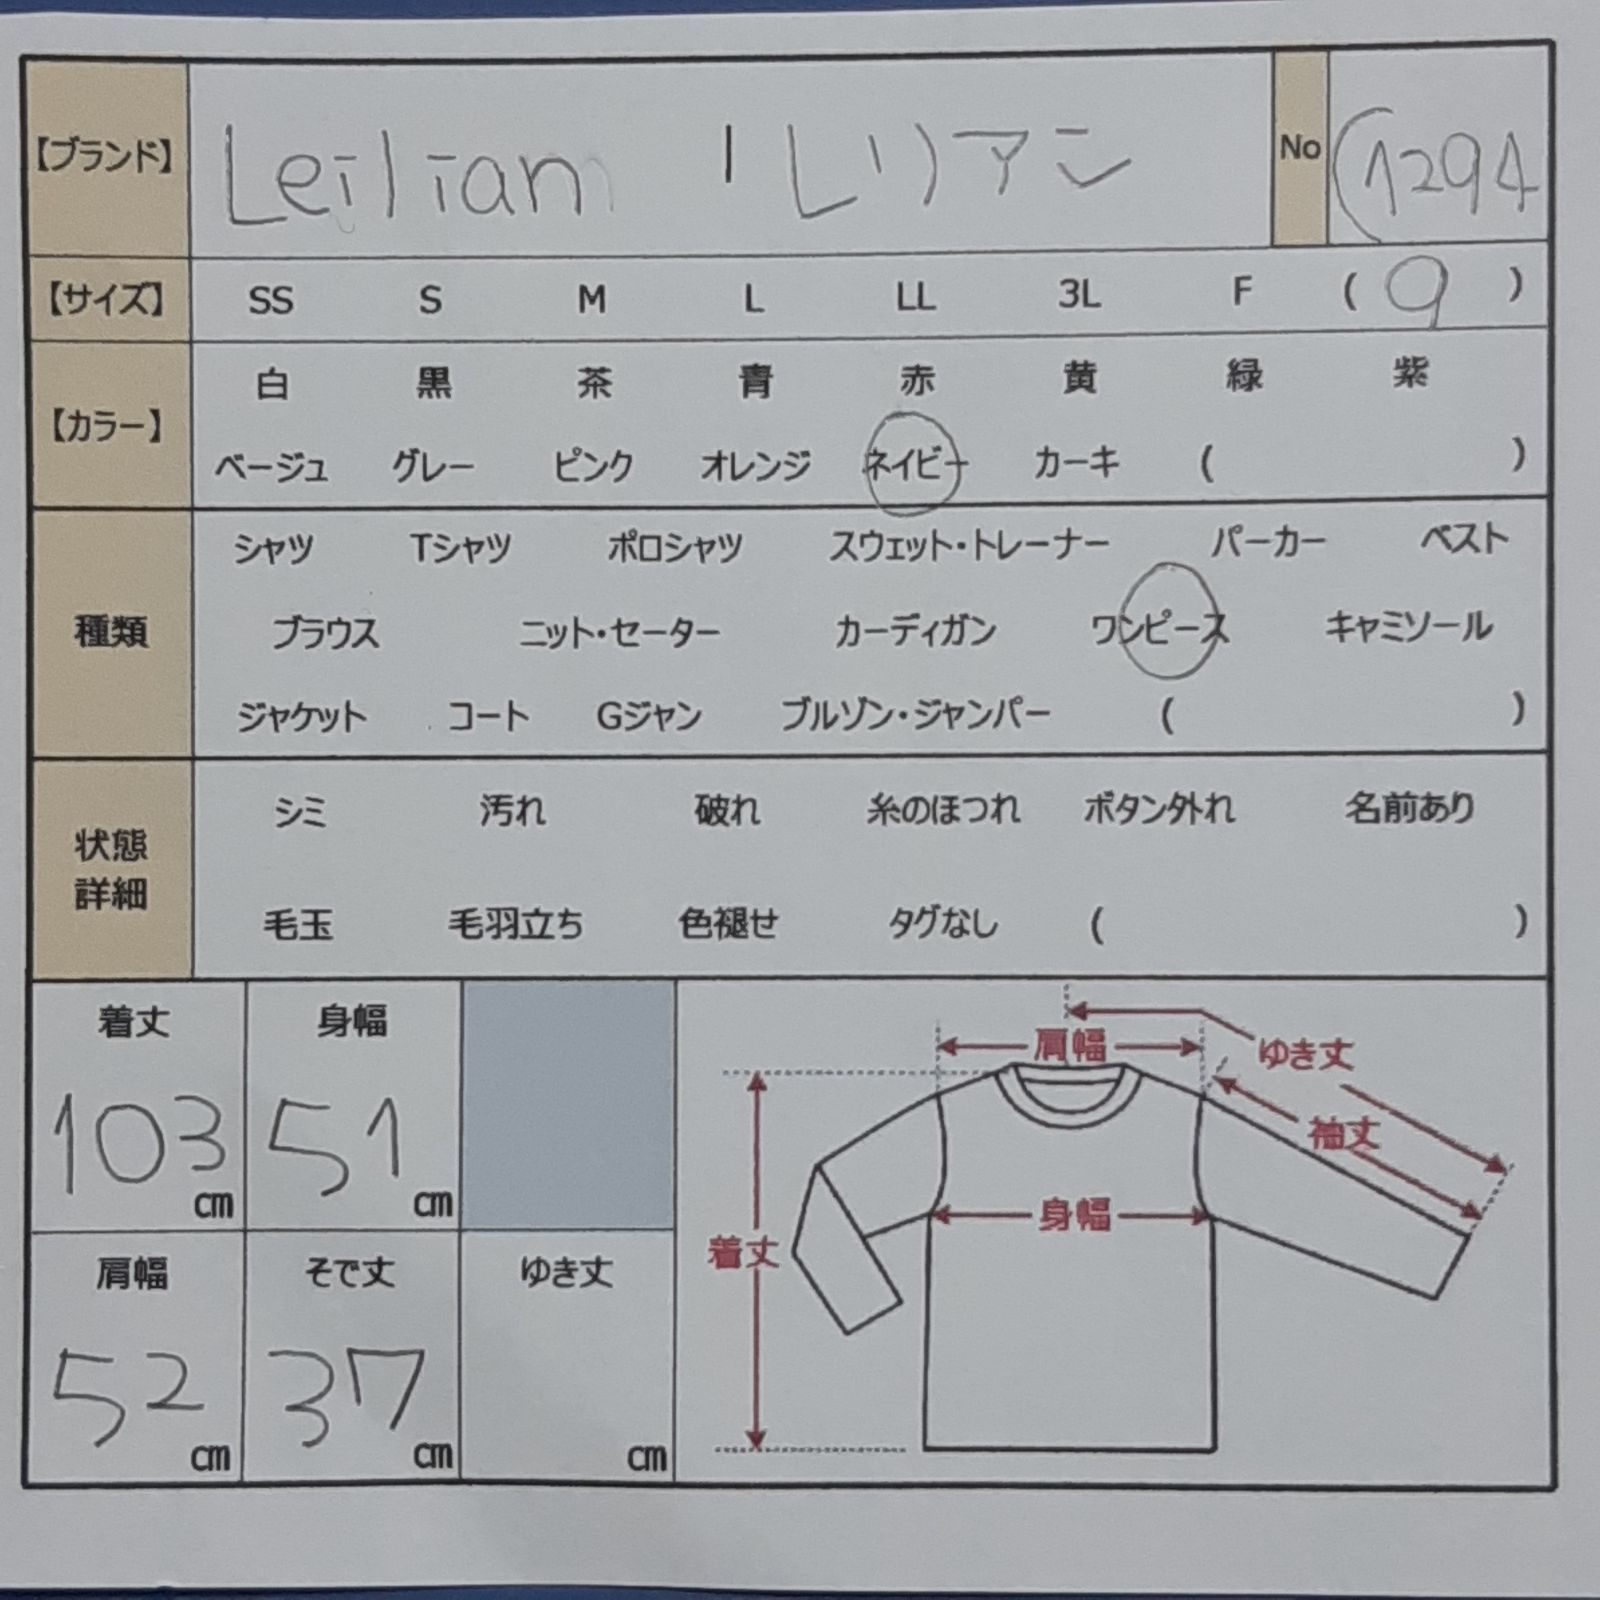 【ブランド】 Leiliam 1 レリアン No (1294
【サイズ】 SS S M L LL 3L F ( 9 )
【カラー】 白 黒 茶 青 赤 黄 緑 紫
ベージュ グレー ピンク オレンジ ネイビー カーキ ( )
種類 シャツ Tシャツ ポロシャツ スウェット・トレーナー パーカー ベスト
ブラウス ニット・セーター カーディガン ワンピース キャミソール
ジャケット コート Gジャン ブルゾン・ジャンパー ( )
状態詳細 シミ 汚れ 破れ 糸のほつれ ボタン外れ 名前あり
毛玉 毛羽立ち 色褪せ タグなし ( )
着丈 身幅
103cm 51cm
肩幅 そで丈 ゆき丈
52cm 37cm cm
肩幅
ゆき丈
袖丈
身幅
着丈